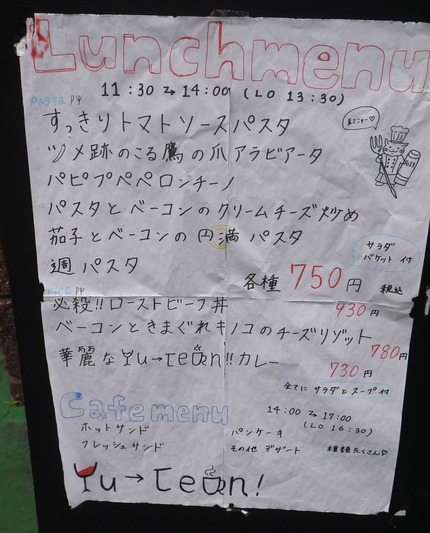 Lunchmenu
11:30〜14:00 (LO 13:30)
pasta
すっきりトマトソースパスタ
ツメ跡のこる鷹の爪アラビアータ
パピプペペロンチーノ
パスタとベーコンのクリームチーズ炒め
茄子とベーコンの円満パスタ
サラダ
バケット付
週パスタ
各種 750円 税込
rice
必殺!!ローストビーフ丼 930円
ベーコンときまぐれキノコのチーズリゾット 780円
華麗なYu→Tean!!カレー 730円
全てにサラダとスープ付
Cafe menu
14:00〜17:00
(LO 16:30)
ホットサンド パンケーキ
フレッシュサンド その他デザート
種類たくさん♡
Yu→Tean!